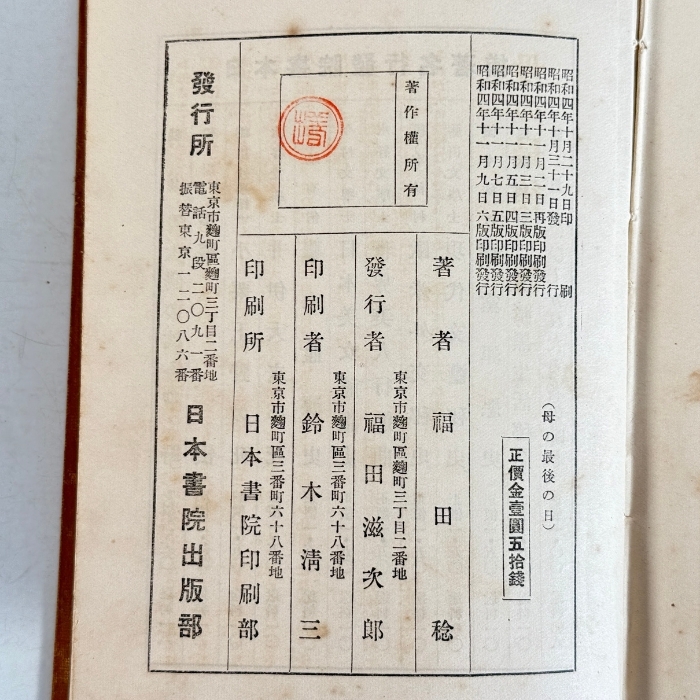 昭和四年十月二十九日印刷
昭和四年十月三十一日發行
昭和四年十一月二日再版印刷發行
昭和四年十一月三日三版印刷發行
昭和四年十一月五日四版印刷發行
昭和四年十一月七日五版印刷發行
昭和四年十一月九日六版印刷發行
（母の最後の日）
正價金壹圓五拾錢
著作權所有
著者 福田稔
東京市麴町區麴町三丁目二番地
發行者 福田滋次郎
東京市麴町區三番町六十八番地
印刷者 鈴木淸三
東京市麴町區三番町六十八番地
印刷所 日本書院印刷部
發行所
東京市麴町區麴町三丁目二番地
電話九段二〇九一番
振替東京一二〇八六番
日本書院出版部